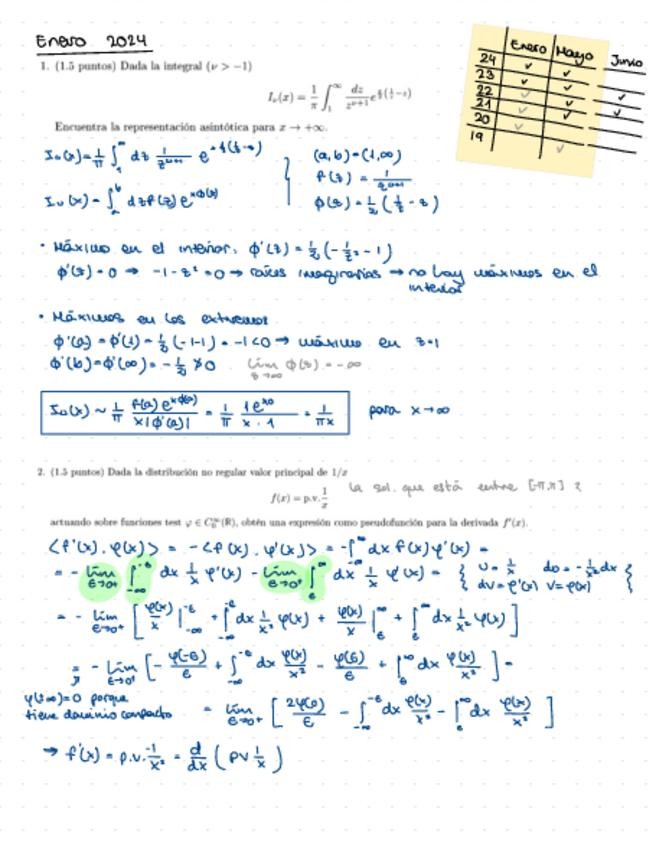 Enero 2024
Enero Mayo Junio
24 ✓ ✓
23 ✓ ✓
22 ✓ ✓
21 ✓ ✓ ✓
20 ✓
19 ✓
1. (1.5 puntos) Dada la integral (ν > −1)
I_ν(x) = 1/π ∫_1^∞ dz/z^{ν+1} e^{x/2(1/z − z)}
Encuentra la representación asintótica para x → +∞.
I_ν(x) = 1/π ∫_1^∞ dz 1/z^{ν+1} e^{x ½(1/z − z)} (a,b) = (1,∞)
f(z) = 1/z^{ν+1}
I_ν(x) = ∫_a^b dz f(z) e^{xϕ(z)} ϕ(z) = ½(1/z − z)
• Máximo en el interior. ϕ'(z) = ½(−1/z² − 1)
ϕ'(z) = 0 → −1 − z² = 0 → raíces imaginarias → no hay máximos en el
interior
• Máximos en los extremos
ϕ'(a) = ϕ'(1) = ½(−1−1) = −1 < 0 → máximo en z=1
ϕ'(b) = ϕ'(∞) = −½ ≯ 0 lim_{z→∞} ϕ(z) = −∞
I_ν(x) ~ 1/π f(a) e^{xϕ(a)} / x|ϕ'(a)| = 1/π 1 e^{x0} / x · 1 = 1/πx para x→∞
2. (1.5 puntos) Dada la distribución no regular valor principal de 1/x
la sol. que está entre [-π,π] ?
f(x) = p.v. 1/x
actuando sobre funciones test φ ∈ C_0^∞(ℝ), obtén una expresión como pseudofunción para la derivada f'(x).
<f'(x), φ(x)> = −<f(x), φ'(x)> = −∫_{-∞}^∞ dx f(x) φ'(x) =
= − lim_{ε→0⁺} ∫_{-∞}^{-ε} dx 1/x φ'(x) − lim_{ε→0⁺} ∫_ε^∞ dx 1/x φ'(x) = { u = 1/x du = −1/x² dx
dv = φ'(x) v = φ(x) }
= − lim_{ε→0⁺} [ φ(x)/x |_{-∞}^{-ε} + ∫_{-∞}^{-ε} dx 1/x² φ(x) + φ(x)/x |_ε^∞ + ∫_ε^∞ dx 1/x² φ(x) ]
= − lim_{ε→0⁺} [ − φ(−ε)/ε + ∫_{-∞}^{-ε} dx φ(x)/x² − φ(ε)/ε + ∫_ε^∞ dx φ(x)/x² ] =
φ(±∞)=0 porque
tiene dominio compacto
= lim_{ε→0⁺} [ 2φ(0)/ε − ∫_{-∞}^{-ε} dx φ(x)/x² − ∫_ε^∞ dx φ(x)/x² ]
→ f'(x) = p.v. −1/x² = d/dx ( pv 1/x )